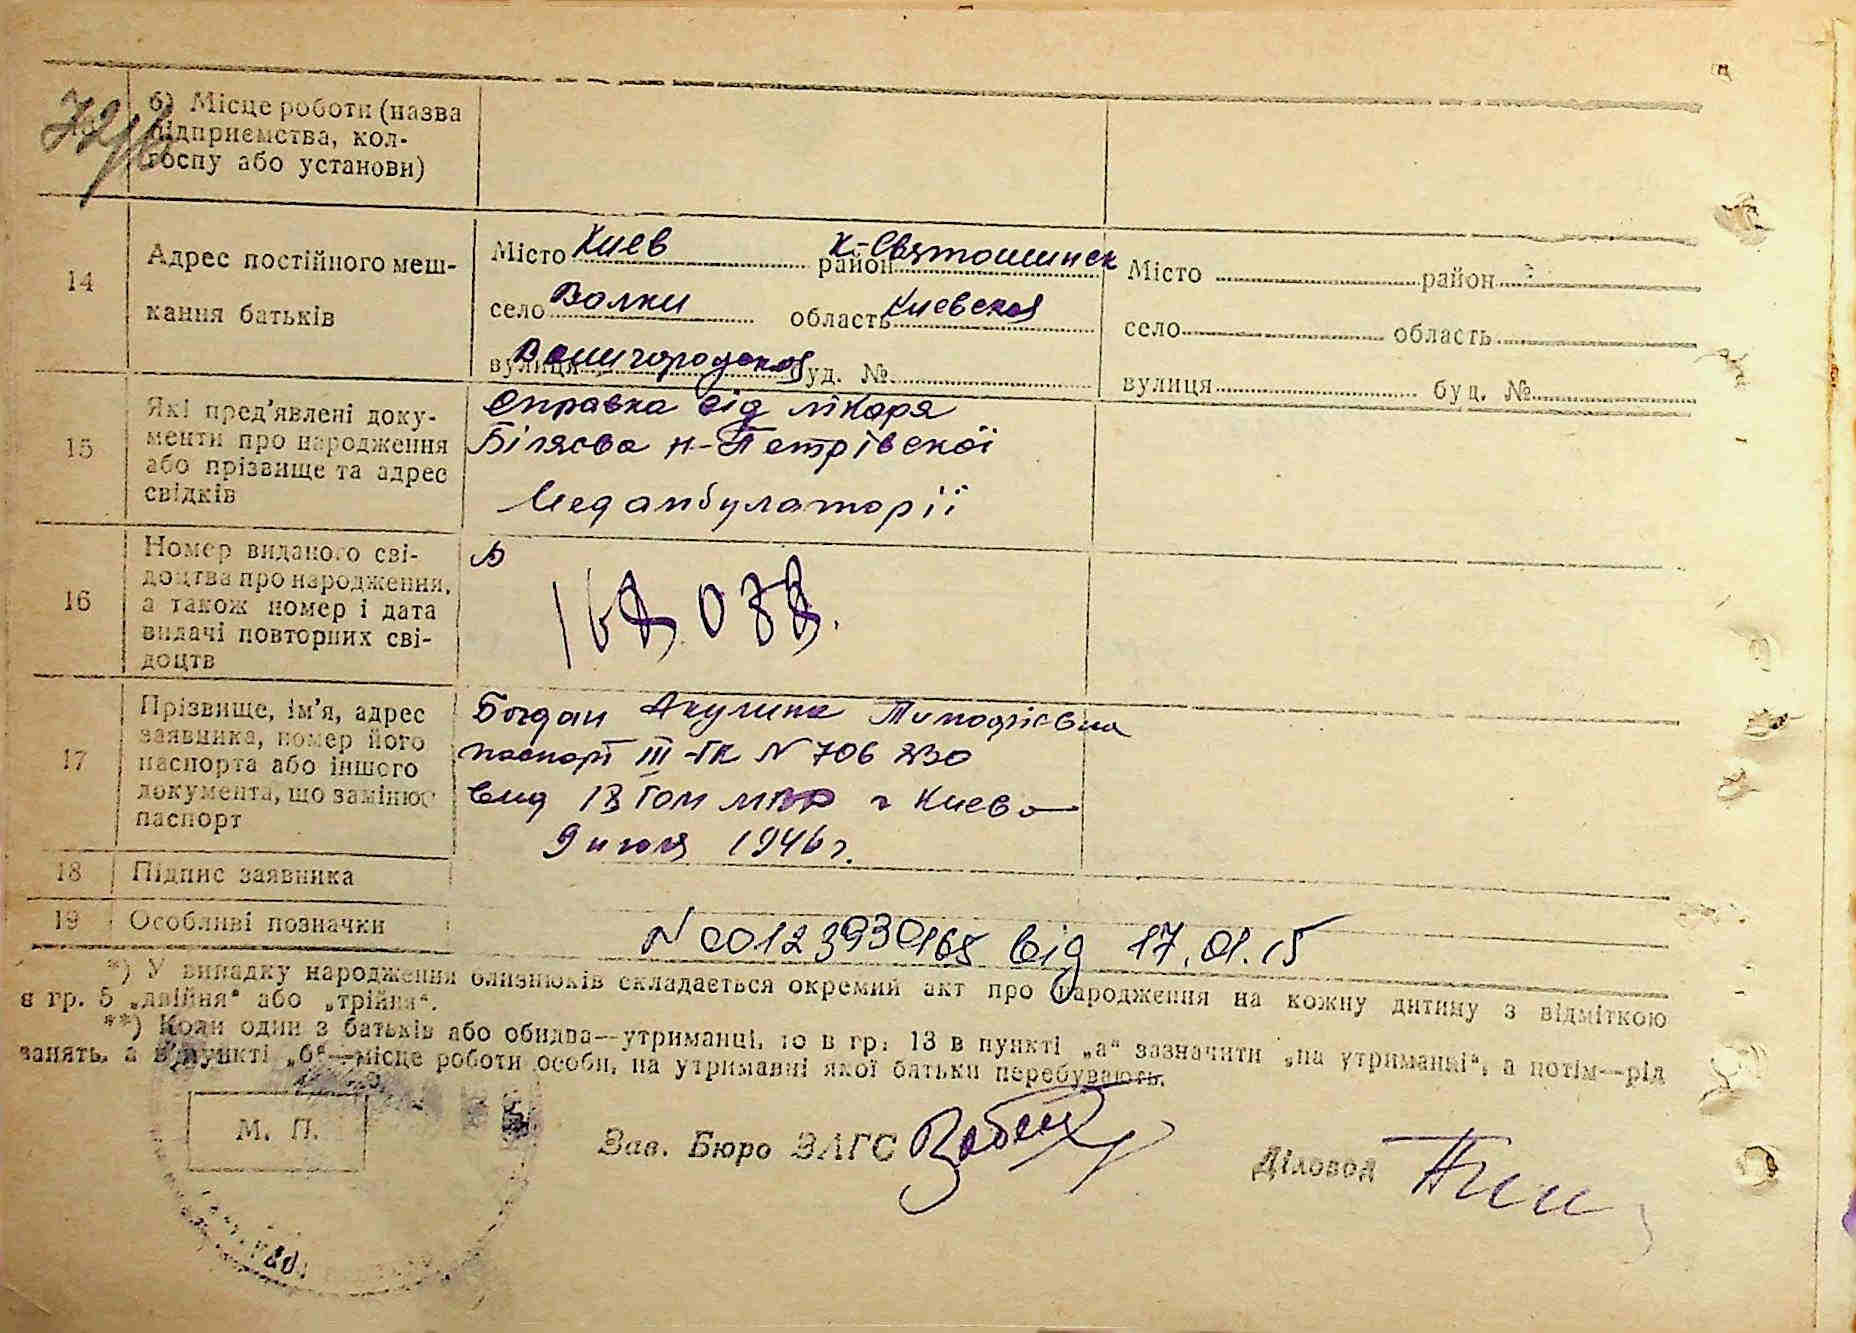 72/6
б) Місце роботи (назва
підприємства, кол-
госпу або установи)
14
Адрес постійного меш-
кання батьків
Місто Киев район К-Святошинск
село Волки область Киевская
вулиця Вышгородская буд. №
Місто район
село область
вулиця буд. №
15
Які пред'явлені доку-
менти про народження
або прізвище та адрес
свідків
Справка від лікаря
Біляєва Н-Петрівської
Медамбулаторії
16
Номер виданого сві-
доцтва про народження,
а також номер і дата
видачі повторних сві-
доцтв
168.088.
17
Прізвище, ім'я, адрес
заявника, номер його
паспорта або іншого
документа, що замінює
паспорт
Богдан Акулина Тимофіевна
паспорт III-ГК N 706 230
вид 18 ГОМ г Киева
9 июля 1946 г.
18
Підпис заявника
19
Особливі позначки
N 00123930165 від 17.01.15
*) У випадку народження близнюків складається окремий акт про народження на кожну дитину з відміткою
в гр. 5 „двійня“ або „трійня“.
**) Коли один з батьків або обидва—утриманці, то в гр. 13 в пункті „а“ зазначити „на утриманні“, а потім—рід
занять, а в пункті „б“—місце роботи особи, на утриманні якої батьки перебувають.
М. П.
Зав. Бюро ЗАГС
Діловод